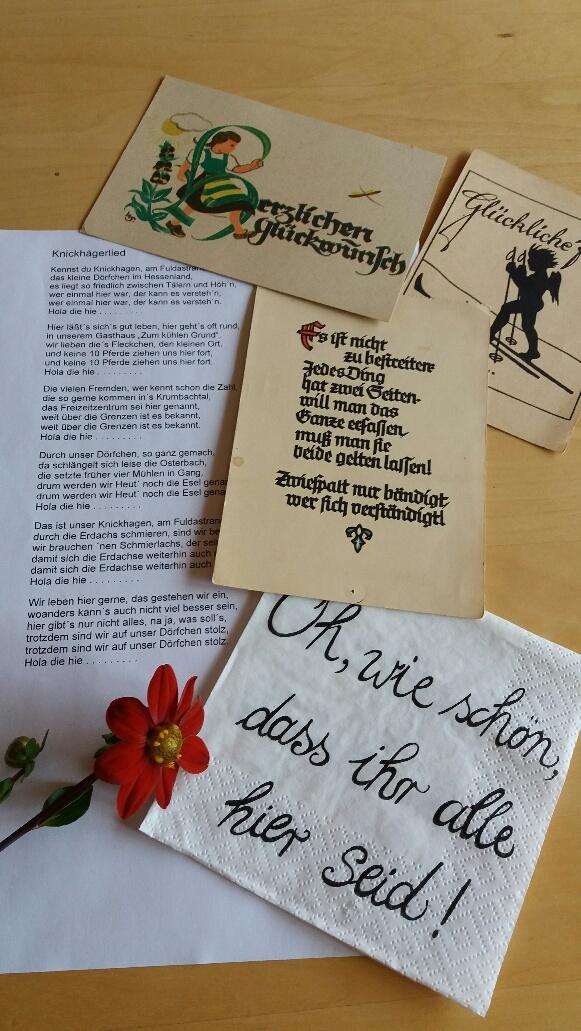 Herzlichen
Glückwunsch
Glückliche
Knickhägerlied
Kennst du Knickhagen, am Fuldastrand
das kleine Dörfchen im Hessenland,
es liegt so friedlich zwischen Tälern und Höh'n,
wer einmal hier war, der kann es versteh'n,
wer einmal hier war, der kann es versteh'n.
Hola die hie . . . . . . . . .
Hier läßt´s sich´s gut leben, hier geht´s oft rund,
in unserem Gasthaus „Zum kühlen Grund",
wir lieben die´s Fleckchen, den kleinen Ort,
und keine 10 Pferde ziehen uns hier fort,
und keine 10 Pferde ziehen uns hier fort.
Hola die hie . . . . . . . . .
Die vielen Fremden, wer kennt schon die Zahl,
die so gerne kommen in´s Krumbachtal,
das Freizeitzentrum sei hier genannt,
weit über die Grenzen ist es bekannt,
weit über die Grenzen ist es bekannt.
Hola die hie . . . . . . . . .
Durch unser Dörfchen, so ganz gemach,
da schlängelt sich leise die Osterbach,
die setzte früher vier Mühlen in Gang,
drum werden wir Heut´ noch die Esel
drum werden wir Heut´ noch die Esel
Hola die hie . . . . . . . . .
Das ist unser Knickhagen, am
durch die Erdachs schmieren, sind wir
wir brauchen ´nen Schmierlachs, der
damit sich die Erdachse weiterhin auch
damit sich die Erdachse weiterhin auch
Hola die hie . . . . . . . . .
Wir leben hier gerne, das gestehen wir ein,
woanders kann´s auch nicht viel besser sein,
hier gibt´s nur nicht alles, na ja, was soll´s,
trotzdem sind wir auf unser Dörfchen stolz,
trotzdem sind wir auf unser Dörfchen stolz.
Hola die hie . . . . . . . . .
Es ist nicht
zu bestreiten:
Jedes Ding
hat zwei Seiten-
will man das
Ganze erfassen,
muß man sie
beide gelten lassen!
Zwiespalt nur bändigt,
wer sich verständigt!
Oh, wie schön,
dass ihr alle
hier seid!